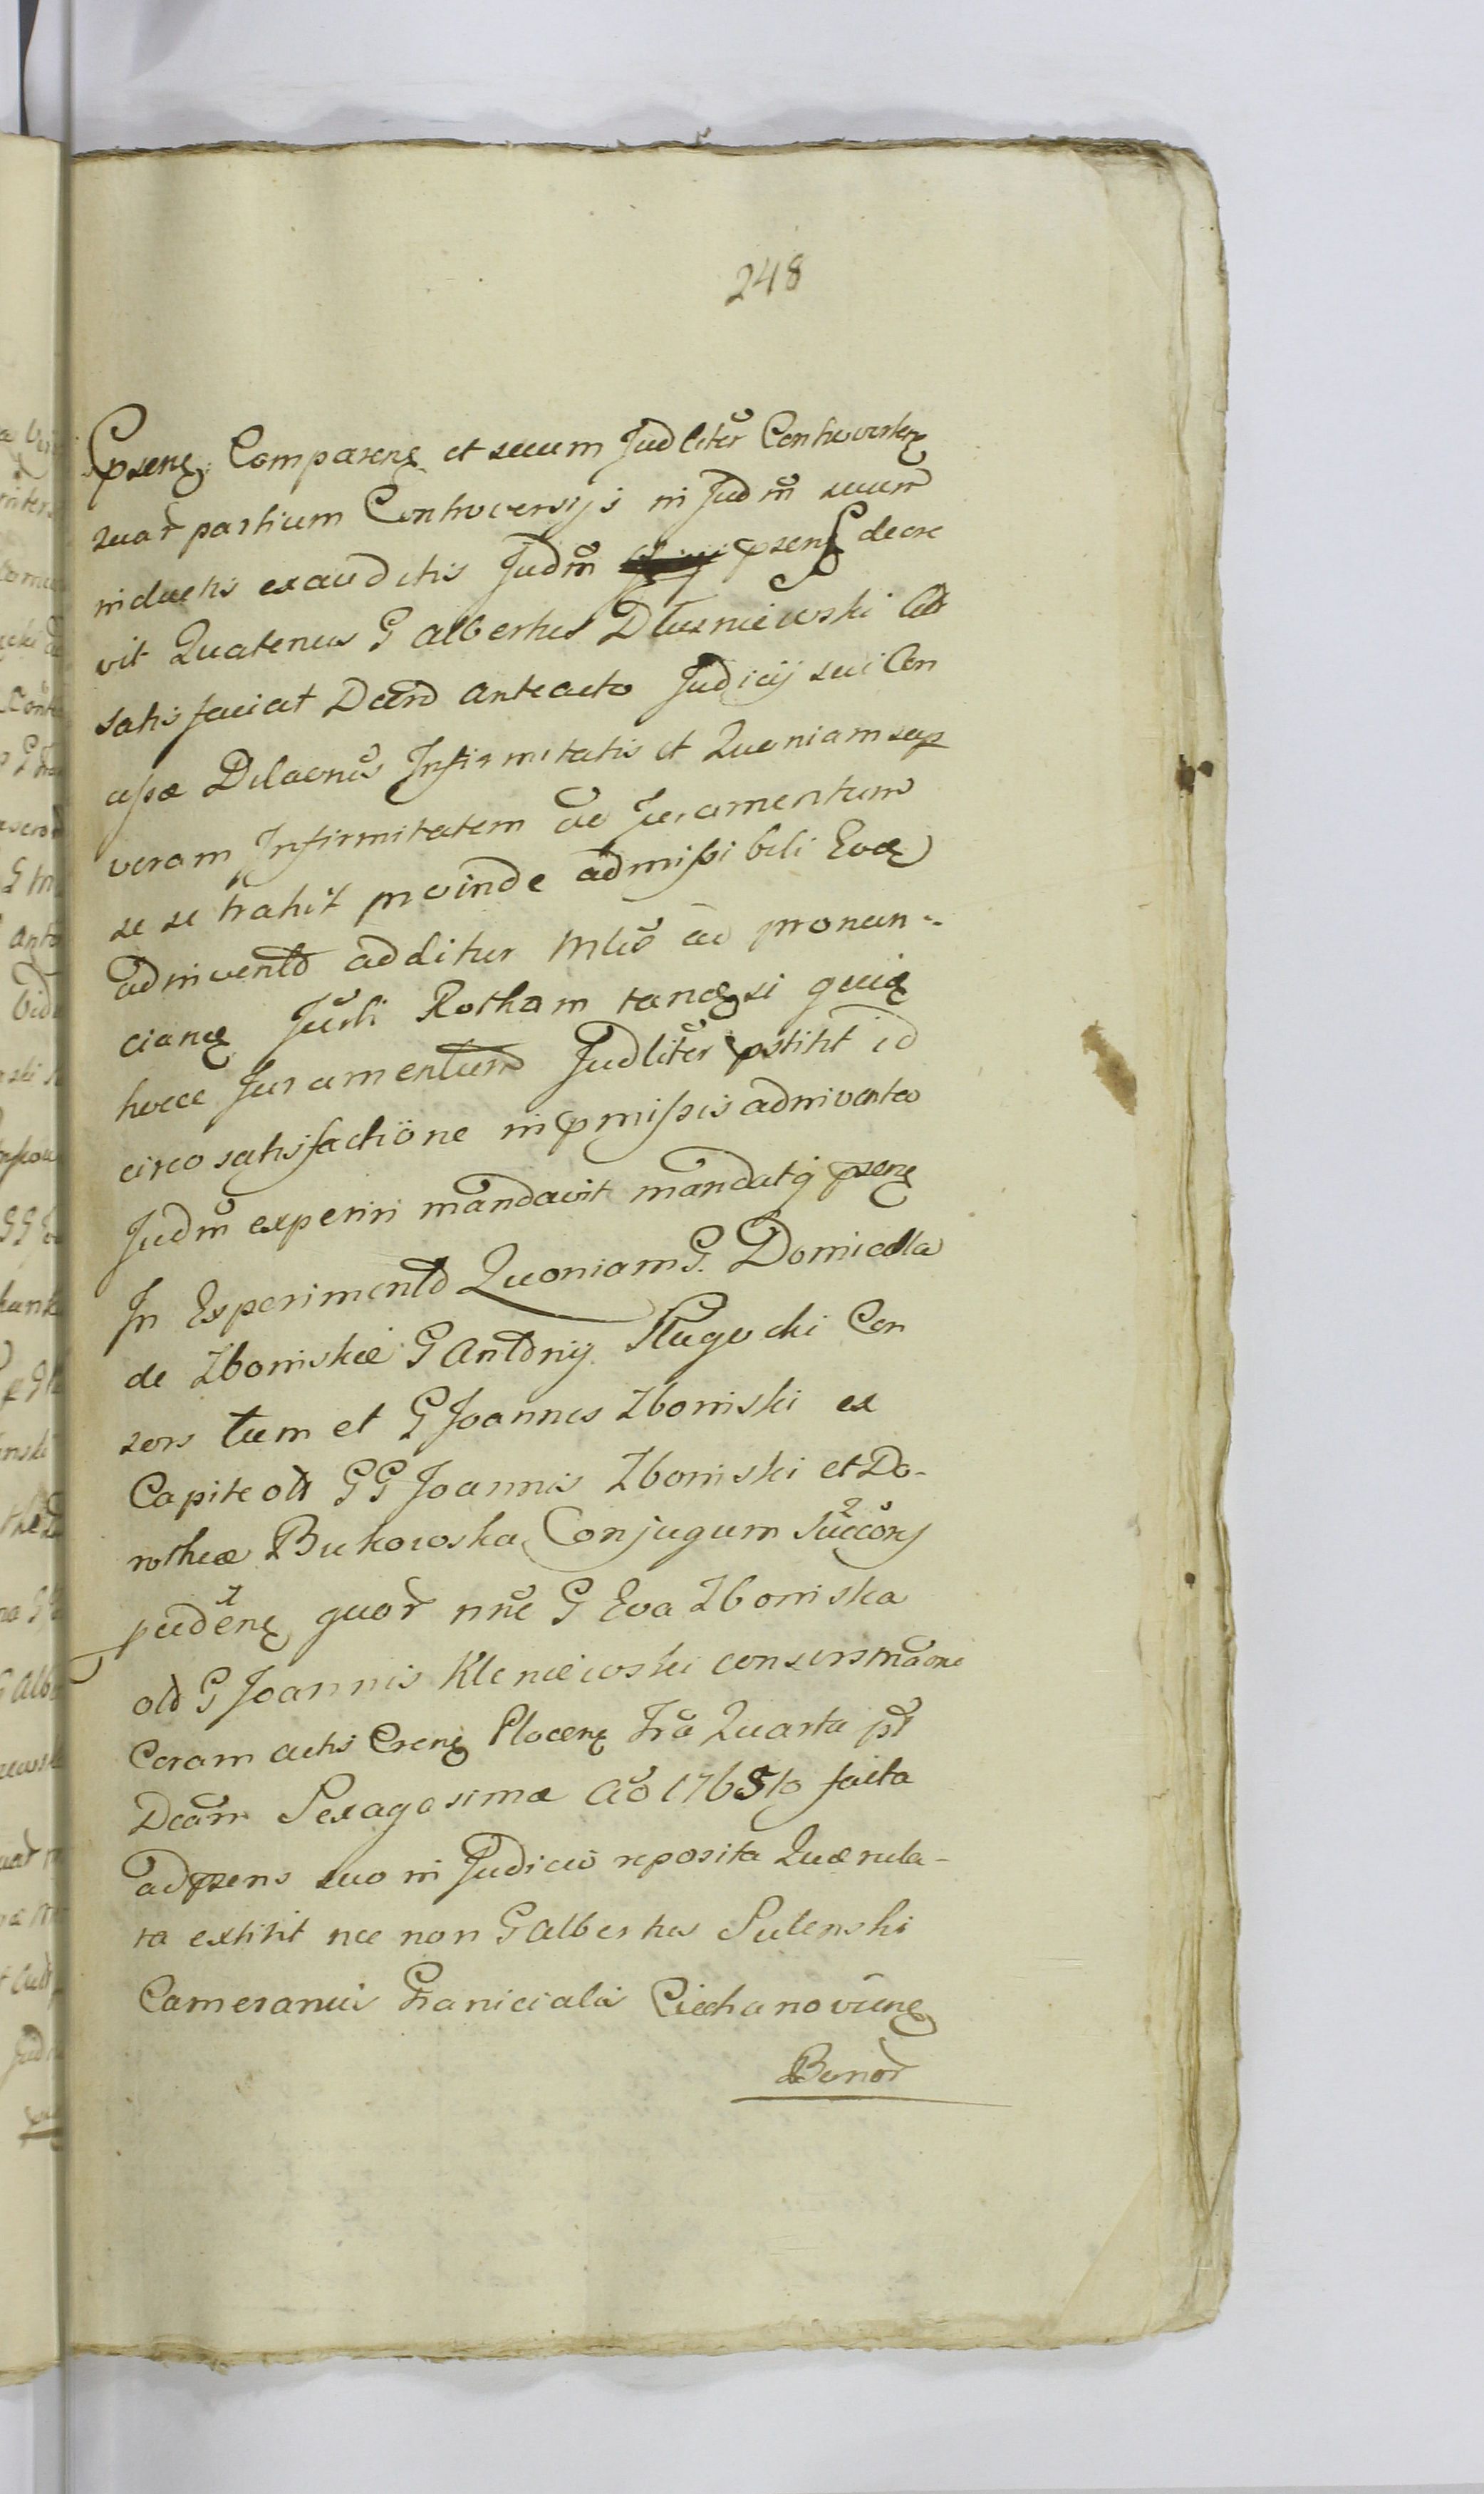 248
Cpsenę Comparenę et secum Judliter Controvertenę
suar partium Controversijs in Judm suum
inductis exauditis Judm psenę decre
vit Quatenus G Albertus Dłuzniewski
satisfaciat Decrto anteacto Judicij sui Con
Dilaonis Infirmitatis et Quoniam sup
veram Infirmitatem ad Juramentum
se se trahit proinde admissibili Evae
adinvento additur Mlo ad pronun-
cianę Justi Rotham tanq si quia
hocce Juramentum Judliter pstitit id
circo satisfactione in pmissis adinventa
Judm experiri mandavit mandatq psenę
In Experimento Quoniam G. Domicella
de Zboinskie G Antonij Sługocki Con
sors tum et G Joannes Zboinski ex
Capite olt GG Joannis Zboinski et Do-
rotheae Bukowska Conjugum Succorę
pudenę quor nnc G Eva Zboinska
olt G Joannis Kleniewski consors maone
Coram actis Crenę Plocenę Fra Quarta pt
Dcam Sexagesimae Ao 1765to facta
ad psens suo in Judicio reposita Quaerula-
ta extitit nec non G Albertus Sulenski
Camerarius Granicialis Ciechanoviene
Bonor